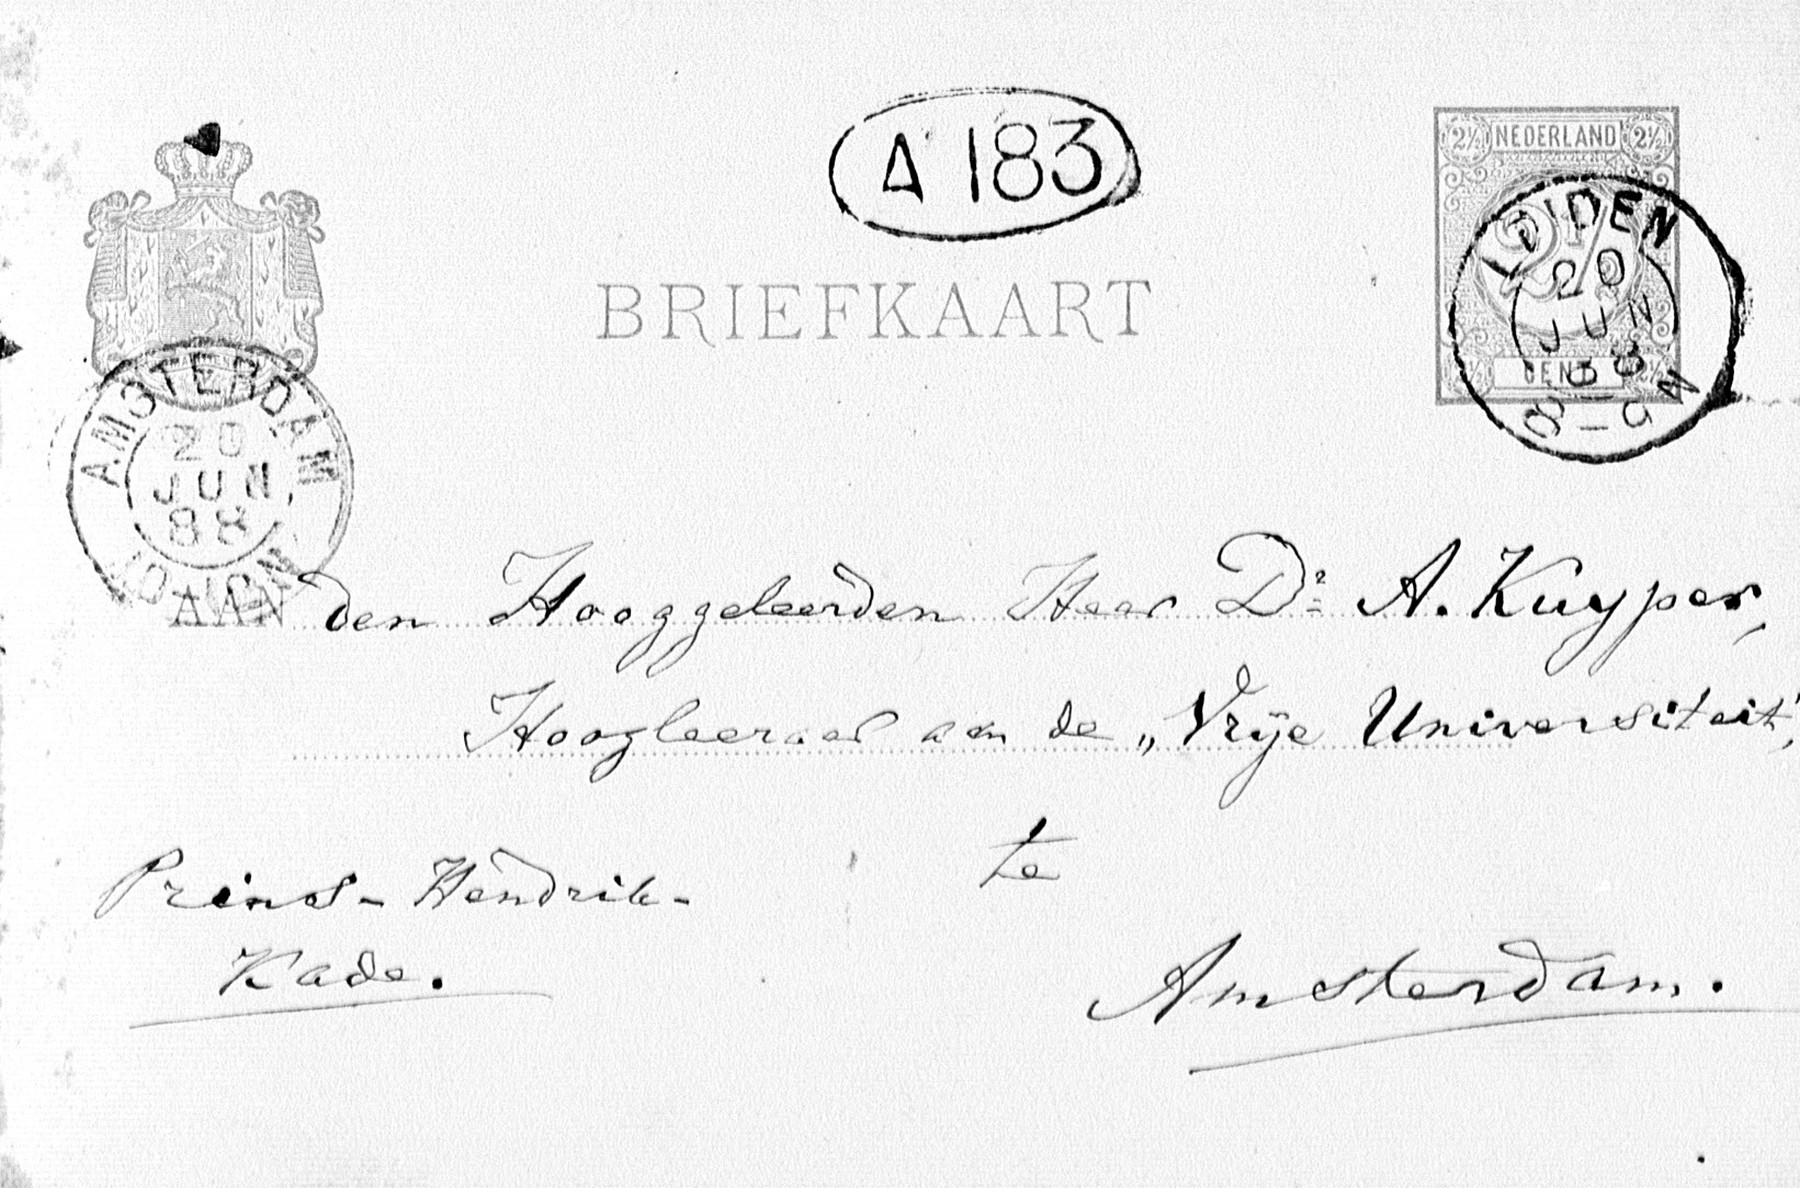 A 183
2½ NEDERLAND 2½
2½
CENT
LEIDEN
20
JUN
88
8-9N
BRIEFKAART
AMSTERDAM
20
JUN
88
10-12N
AAN den Hooggeleerden Heer Dr. A. Kuyper,
Hoogleeraar aan de „Vrije Universiteit",
te
Prins-Hendrik-
Kade.
Amsterdam.